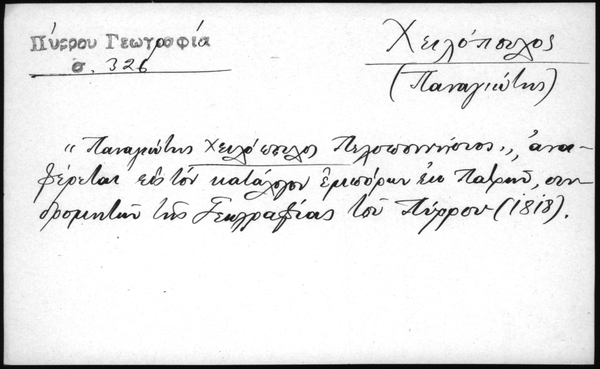 Πύρρου Γεωγραφία
σ. 326
Χειλόπουλος
(Παναγιώτης)
"Παναγιώτης Χειλόπουλος Πελοποννήσιος,, ἀνα-
φέρεται εἰς τόν κατάλογον ἐμπόρων ἐκ Πατρῶν, συν-
δρομητῶν τῆς Γεωγραφίας τοῦ Πύρρου (1818).